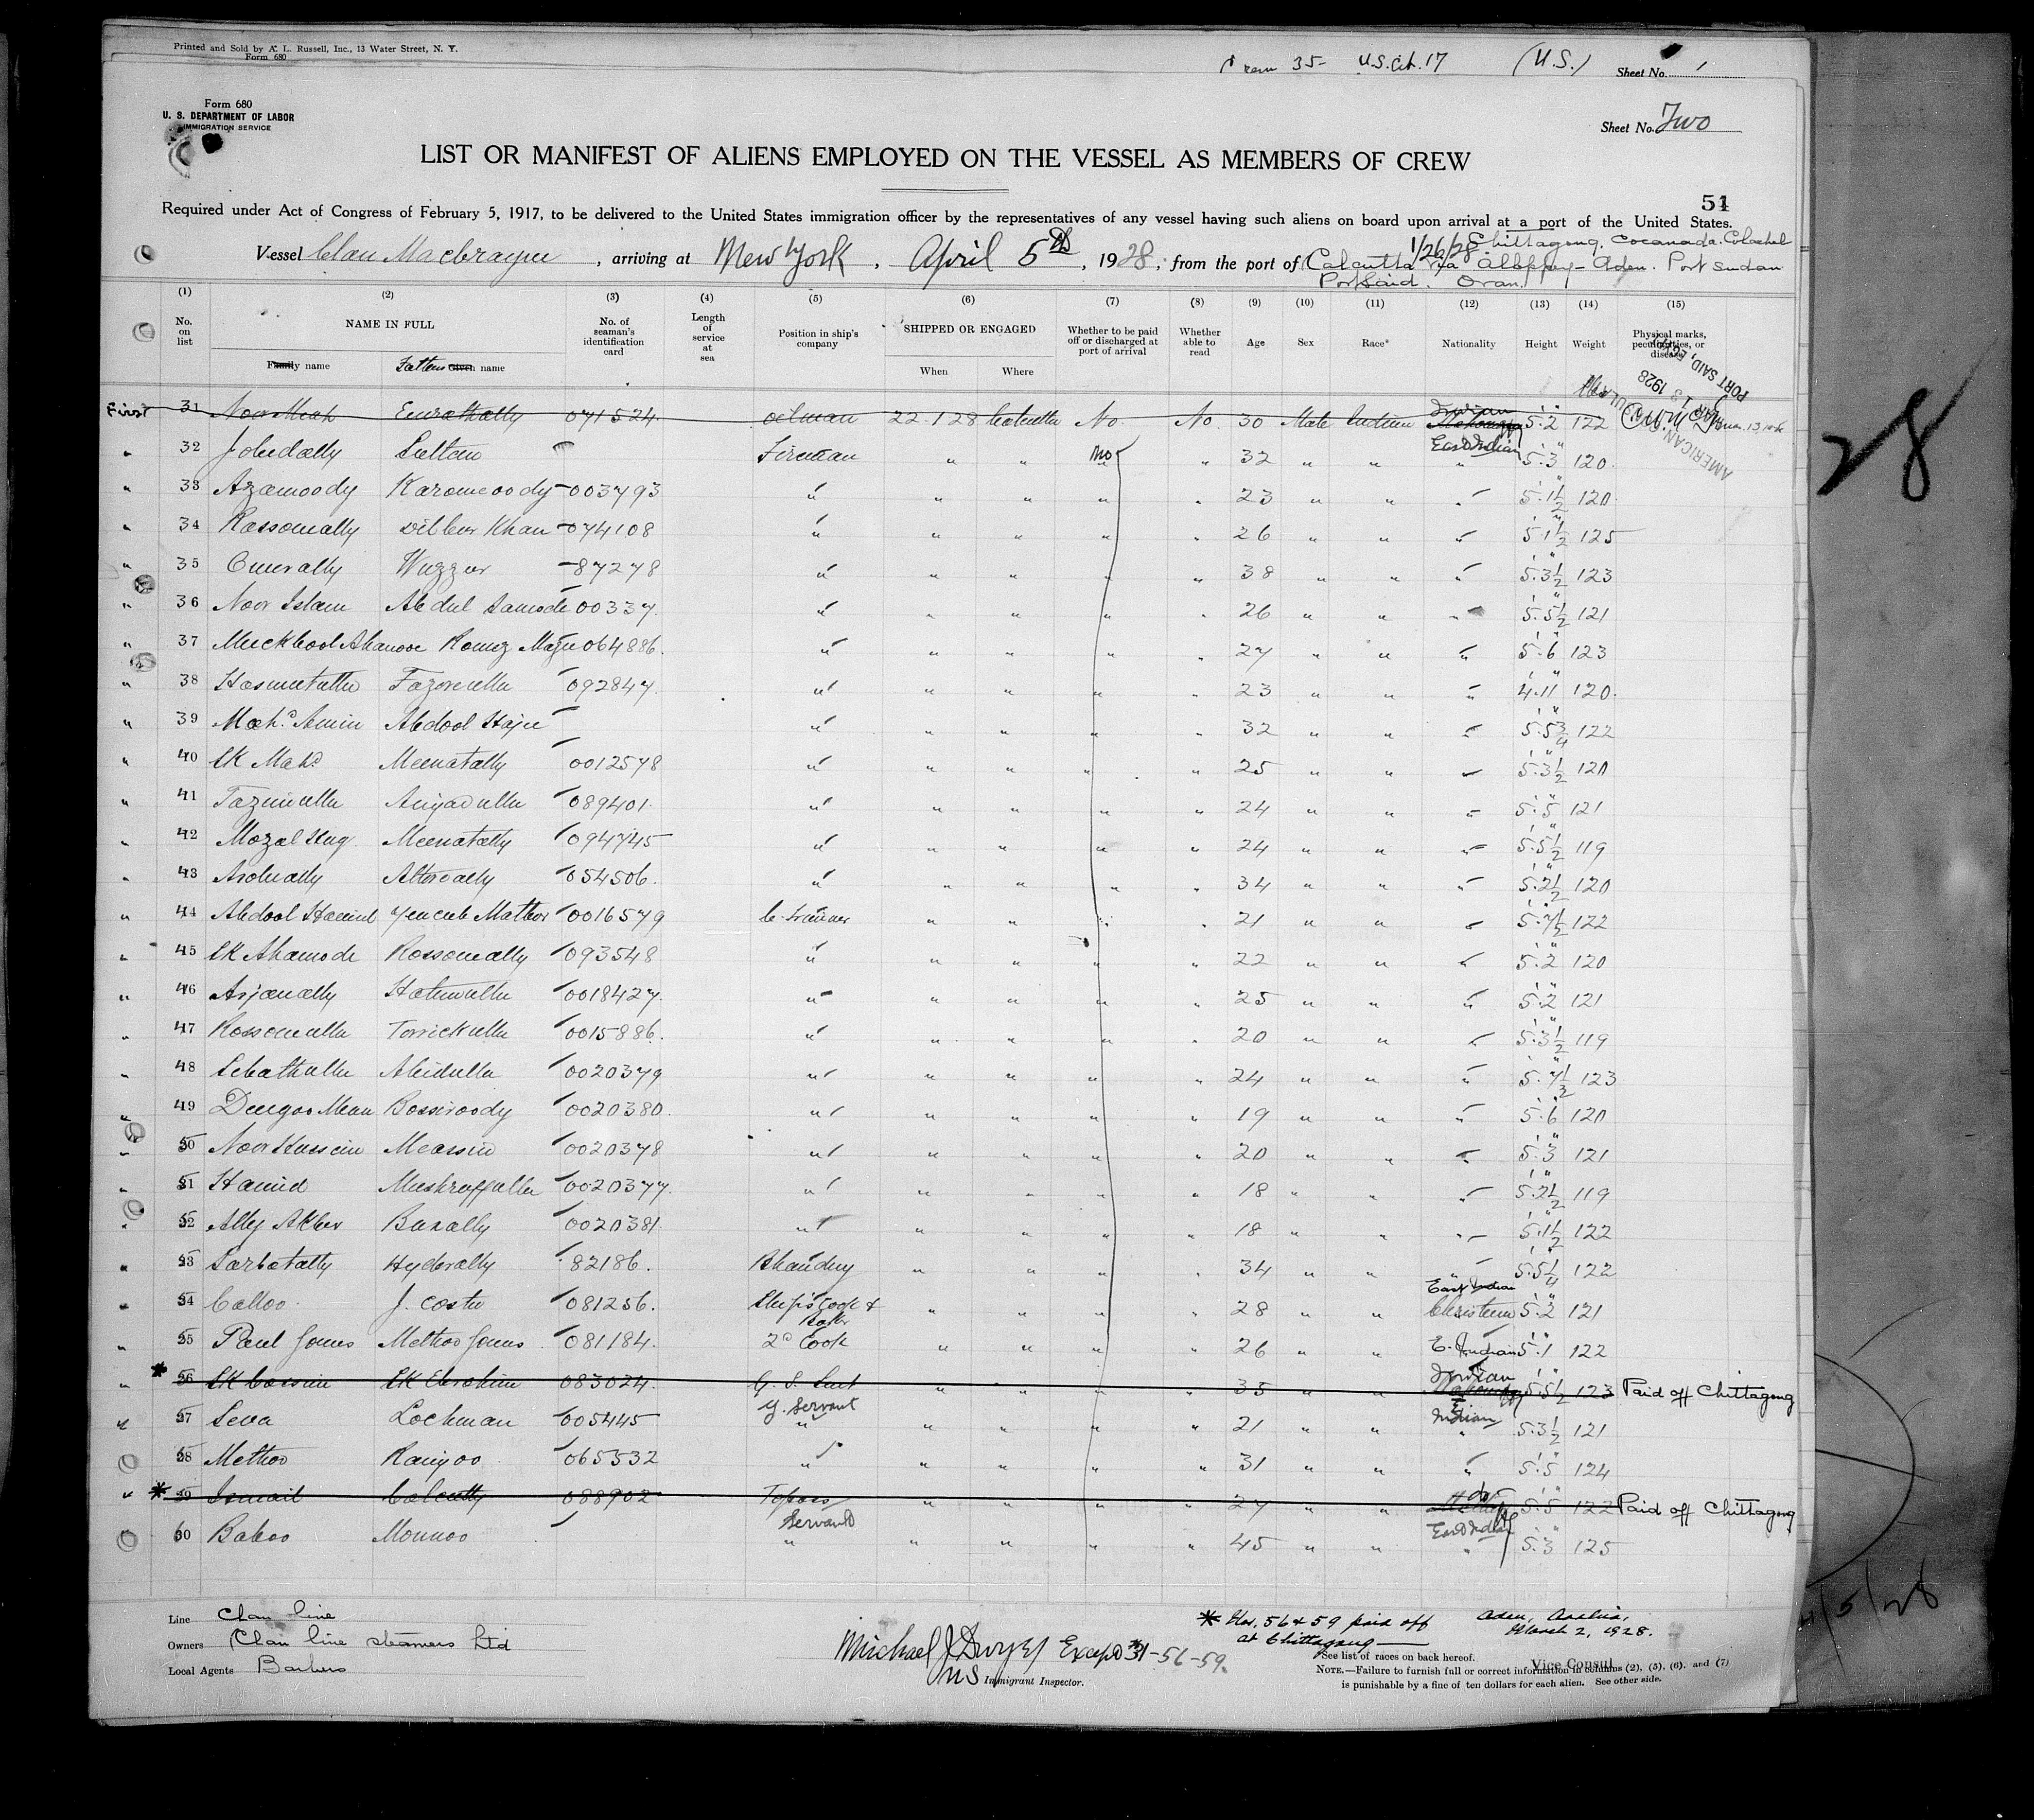 Printed and Sold by A. L. Russell, Inc., 13 Water Street, N. Y.
Form 680
35- U.S. Cit. 17 (U.S.) Sheet No. 1
Form 680
U. S. DEPARTMENT OF LABOR
IMMIGRATION SERVICE
Sheet No. Two
LIST OR MANIFEST OF ALIENS EMPLOYED ON THE VESSEL AS MEMBERS OF CREW
51
Required under Act of Congress of February 5, 1917, to be delivered to the United States immigration officer by the representatives of any vessel having such aliens on board upon arrival at a port of the United States.
1/26/28 Chittagong. Cocanada. Colachel
Vessel Clan Macbrayne, arriving at New York, April 5th, 1928, from the port of Calcutta via Alleppey - Aden. Port Sudan
Port Said. Oran.
(1) (2) (3) (4) (5) (6) (7) (8) (9) (10) (11) (12) (13) (14) (15)
No. on list NAME IN FULL No. of seaman's identification card Length of service at sea Position in ship's company SHIPPED OR ENGAGED Whether to be paid off or discharged at port of arrival Whether able to read Age Sex Race* Nationality Height Weight Physical marks, peculiarities, or disease
Family name Given name When Where
AMERICAN MAR 13 1928 PORT SAID, EGYPT
First 31 Noor Meah 071524 oilman 22.1.28 Calcutta No No 30 Male Indian Indian 5.2 122
32 Sultan Fireman " " No " 32 " " East Indian " 5.3 120
33 Azamoody Karomcoody 003793 " " " " " 23 " " " 5.1½ 120
34 Rossomally Dilbur Khan 074108 " " " " " 26 " " " 5.1½ 125
35 Omerally Wuzzur 87278 " " " " " 38 " " " 5.3½ 123
36 Noor Islam Abdul Samode 00337 " " " " " 26 " " " 5.5½ 121
37 Muckbool Ahamose 064886 " " " " " 27 " " " 5.6 123
38 Hasmutulla Fazorulla 092847 " " " " " 23 " " " 4.11 120
39 Mahd. Amin Abdool " " " " " 32 " " " 5.5¾ 122
40 SK Mahd Meenatally 0012578 " " " " " 25 " " " 5.3½ 120
41 Tazimulla 089401 " " " " " 24 " " " 5.5 121
42 Mozal Huq Meenatally 094745 " " " " " 24 " " " 5.5½ 119
43 054506 " " " " " 34 " " " 5.2½ 120
44 Abdool Hamid 0016579 C. Trimmer " " " " 21 " " " 5.7½ 122
45 SK Ahamode Rossomally 093548 " " " " " 22 " " " 5.2 120
46 Arjanally Hatimulla 0018427 " " " " " 25 " " " 5.2 121
47 Rossomulla Torrickulla 0015886 " " " " " 20 " " " 5.3½ 119
48 Abidulla 0020379 " " " " " 24 " " " 123
49 Bossiroody 0020380 " " " " " 19 " " " 5.6 120
50 Noor Hussein 0020378 " " " " " 20 " " " 5.3 121
51 Hamid Mushruffulla 0020377 " " " " " 18 " " " 5.2½ 119
52 Ally Akber Buxally 0020381 " " " " " 18 " " " 5.1½ 122
53 Sarbatally Hyderally 82186 Bhandary " " " " 34 " " " 5.5¼ 122
54 Calloo J. Costa 081256 Ship's Cook & Baker " " " " 28 " " East Indian Christian 5.2 121
55 Paul Gomes Methoo Gomes 081184 2d Cook " " " " 26 " " E. Indian 5.1 122
* 56 SK Cassim SK Ebrahim 083024 " " " " 35 " " Indian 5.5½ 123 Paid off Chittagong
57 Seva Lochman 005445 G. Servant " " " " " 21 " " E. Indian " 5.3½ 121
58 Methoo Rangoo 065532 " " " " " 31 " " " 5.5 124
* 59 Ismail Calcutty 088902 Topass " " " " 27 " " do 5.5 122 Paid off Chittagong
60 Baboo Monnoo Servant " " " " " 45 " " East Indian " 5.3 125
Line Clan line
Owners Clan line steamers Ltd
Local Agents Barbers
Michael J Dwyer Except #31-56-59.
U S Immigrant Inspector.
* Nos. 56 & 59 paid off
at Chittagong
Aden, Arabia,
March 2, 1928.
Vice Consul
*See list of races on back hereof.
NOTE.—Failure to furnish full or correct information in columns (2), (5), (6), and (7)
is punishable by a fine of ten dollars for each alien. See other side.
28
4/5/28